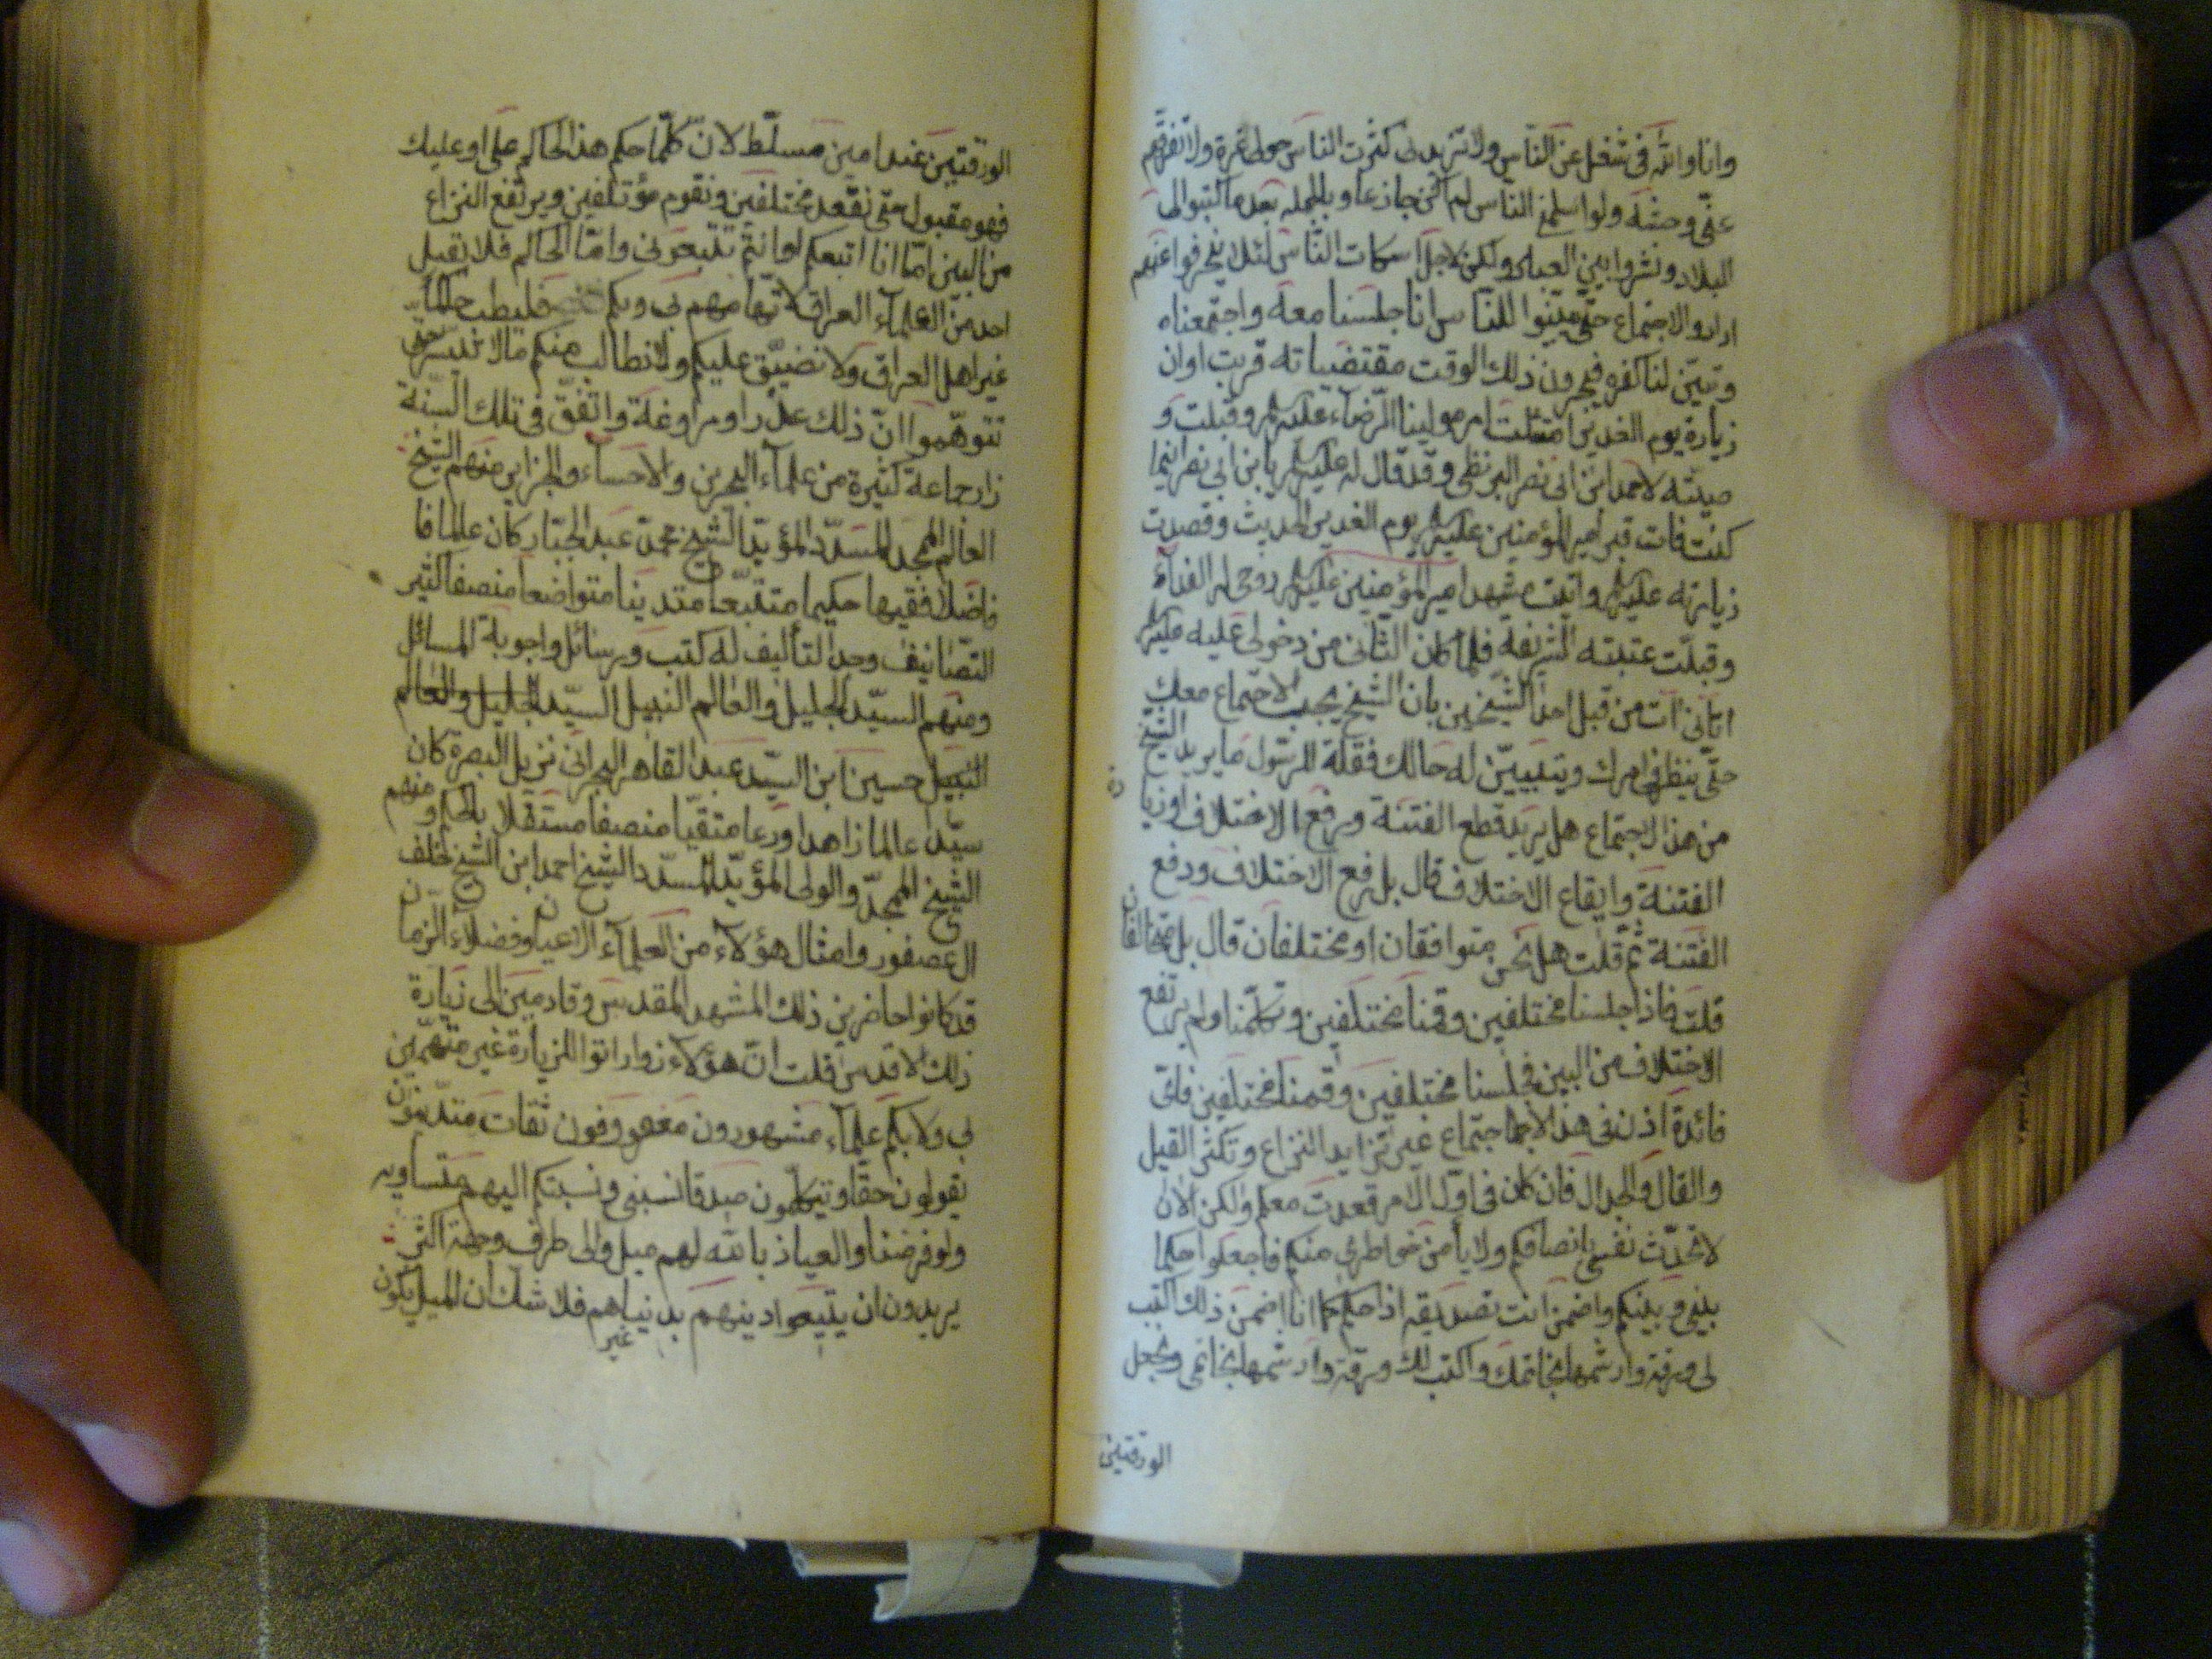 وانا والله فى شغل عن الناس ولا تزيدنى كثرت الناس حولى عزة ولا تفرقهم
عنى وحشة ولو اسلمنى الناس لم اكن جازعا وبالجمله بعد ما كتبوا الى
البلاد ونشروا بين العباد ولكن لاجل اسكات الناس لئلا ينحرفوا عنهم
ارادوا الاجتماع حتى يبينوا للناس انا جلسنا معه واجتمعناه
وتبين لنا كفره فيجرون ذلك الوقت مقتضياته قربت اوان
زيارة يوم الغدير امتثلت امر مولينا الرضاء عليه السلم وقبلت و
صيته لاحمد ابن ابى نصر البزنطى وقد قال له عليه السلم يا بن ابى نصر اينما
كنت فات قبر امير المؤمنين عليه السلم يوم الغدير الحديث وقصدت
زيارته عليه السلم واتيت مشهد امير المؤمنين عليه السلم روحى له الفداء
وقبلت عتبته الشريفة فلما كان الثانى من دخولى عليه سلم
اتانى ات من قبل احد الشيخين بان الشيخ يحب الاجتماع معك
حتى ينظر فى امرك ويتبيين له حالك فقلة للرسول ما يريد الشيخ
من هذا الاجتماع هل يريد قطع الفتنة ورفع الاختلاف او زيا
الفتنة وايقاع الاختلاف قال بل رفع الاختلاف ودفع
الفتنة ثم قلت هل نحن متوافقان او مختلفان قال بل متخالفان
قلت فاذا جلسنا مختلفين وقمنا مختلفين وتكلمنا ولم يرتفع
الاختلاف من البين فجلسنا مختلفين وقمنا مختلفين فاى
فائدة اذن فى هذا الاجتماع غير تزايد النزاع وتكثر القيل
والقال والجدال فان كان فى اول الامر قعدت معكم ولكن الان
لا تحدث نفسى بانصافكم ولا يأمن خواطرى منكم فاجعلوا حكما
بينى وبينكم واضمن انت تصديقه اذا حكم كما انا اضمن ذلك اكتب
لى ورقة وارشمها بخاتمك واكتب لك ورقة وارشمها بخاتمى ونجعل
الورقتين
الورقتين عند امين مسلط لان كلما حكم هذا الحاكم على او عليك
فهو مقبول حتى نقعد مختلفين ونقوم مؤتلفين ويرتفع النزاع
من البين اما انا اتبعكم او انتم تتبعونى واما الحاكم فلا نقبل
احد من العلماء العراق لاتهامهم بى وبكم فليطلب حاكما
غير اهل العراق ولا نضيق عليكم ولا نطالب منكم ما لا تيسر حتى
تتوهموا ان ذلك عذرا ومراوغة واتفق فى تلك السنة
زار جماعة كثيرة من علماء البحرين والاحساء والجزاير منهم الشيخ
العالم الممجد المسدد المؤيد الشيخ محمد عبد الجبار كان عالما فا
ضلا فقيها حكيما متتبعا متدينا متواضعا منصفا كثير
التصانيف وحد التأليف له كتب ورسائل واجوبة المسائل
ومنهم السيد الجليل والعالم النبيل السيد الجليل والعالم
النبيل حسين ابن السيد عبد القاهر البحرانى نزيل البصرة كان
سيدا عالما زاهدا ورعا متقيا منصفا مستقلا بالحكم ومنهم
الشيخ الممجد والولى المؤيد المسدد الشيخ احمد ابن الشيخ خلف
ال عصفور وامثال هؤلاء من العلماء الاعيان وفضلاء الزمان
قد كانوا حاضرين ذلك المشهد المقدس وقادمين الى زيارة
ذلك الاقدس قلت ان هؤلاء زوار اتوا للزيارة غير متهمين
بى ولا بكم علماء مشهورون معروفون ثقات متدينون
يقولون حقا ويتكلمون صدقا نسبتى ونسبتكم اليهم متساويه
ولو فرضنا والعياذ بالله لهم ميل والى طرف وجهة التى
يريدون ان يتبعوا دينهم بدنياهم فلا شك ان الميل يكون
غير